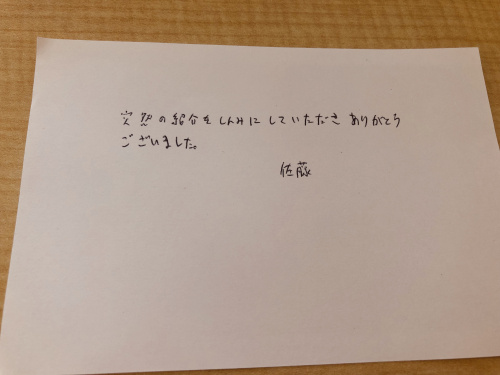 突然の紹介をしんみにしていただきありがとう
ございました。
佐藤